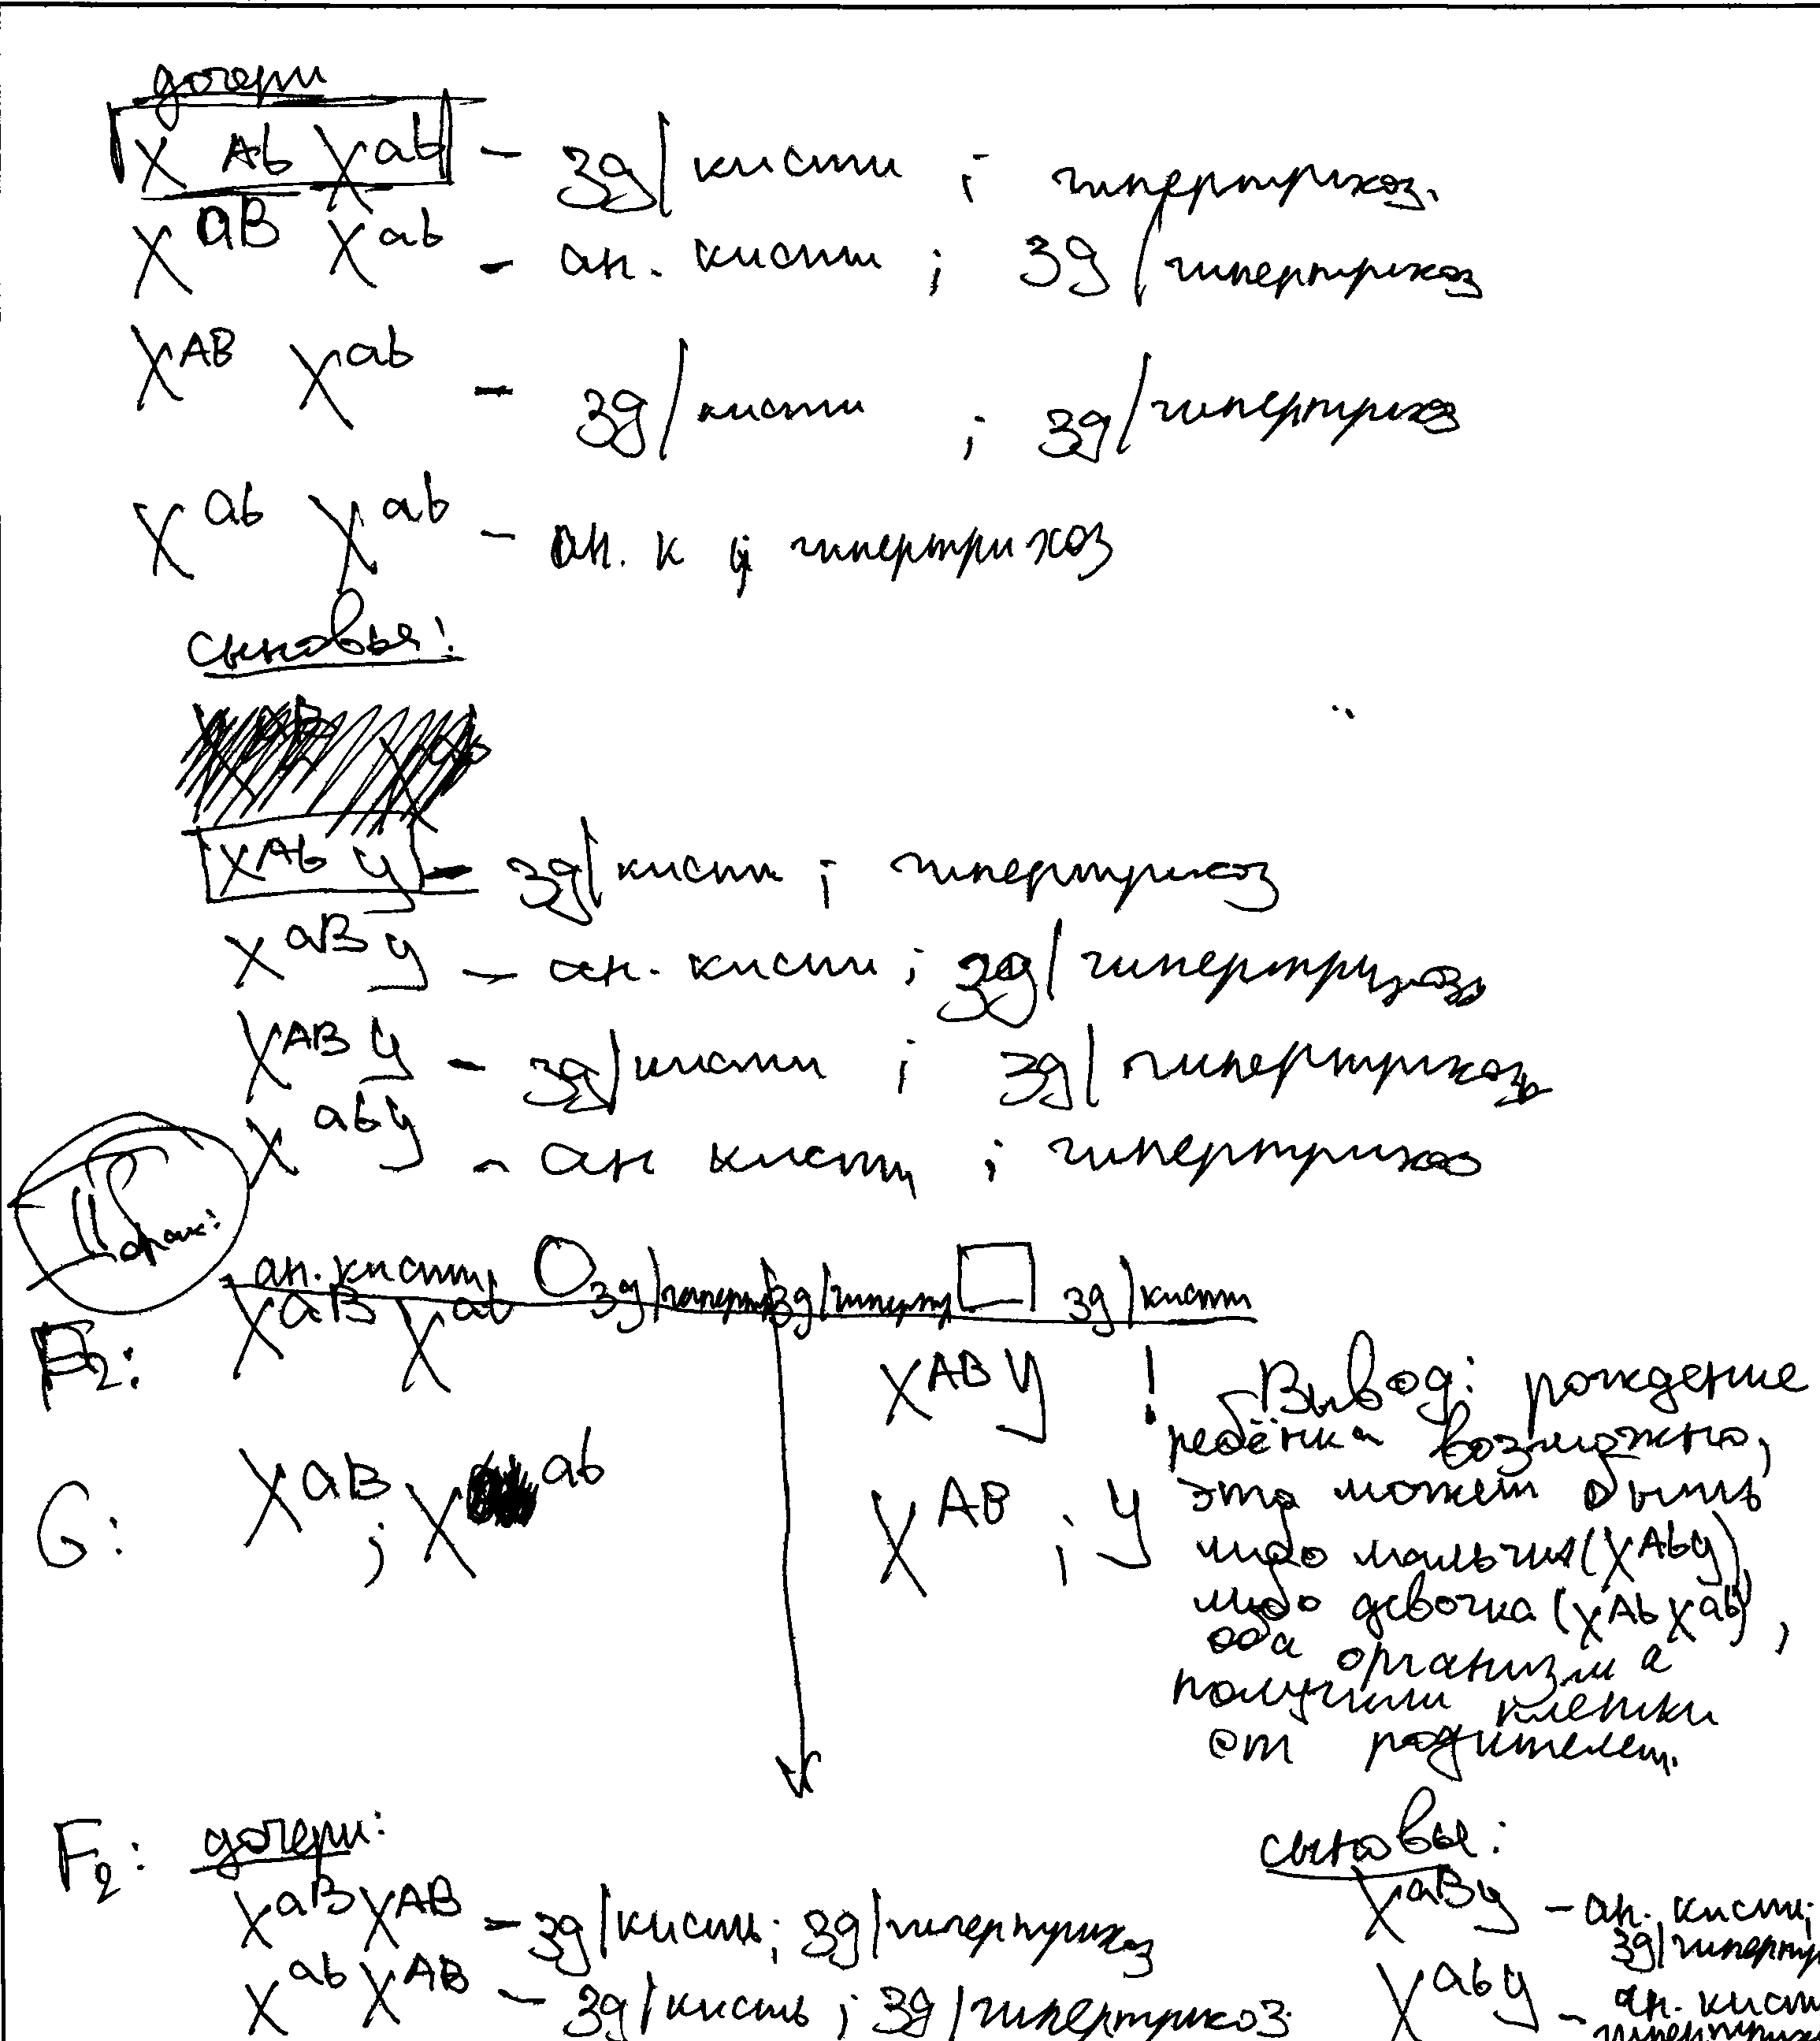 дочери
X^Ab X^ab - зд/кисти ; гипертрихоз.
X^aB X^ab - ан. кисти ; зд/гипертрихоз
X^AB X^ab - зд/кисти ; зд/гипертрихоз
X^ab X^ab - ан. к ; гипертрихоз
сыновья:
X^Ab У - зд/кисти ; гипертрихоз
X^aB У - ан. кисти ; зд/гипертрихоз
X^AB У - зд/кисти ; зд/гипертрихоз
X^ab У - ан кисти ; гипертрихоз
II брак:
ан. кисти, зд/гиперт зд/гиперт зд/кисти
F2: X^aB X^ab X^AB У
G: X^aB ; X^ab X^AB ; У
! Вывод: рождение
ребёнка возможно,
это может быть
либо мальчик (X^Ab У)
либо девочка (X^Ab X^ab),
оба организма
получили клетки
от родителей.
F2: дочери:
X^aB X^AB - зд/кисть ; зд/гипертрихоз
X^ab X^AB - зд/кисть ; зд/гипертрихоз
сыновья:
X^aB У - ан. кисти;
зд/гиперт
X^ab У - ан. кисти